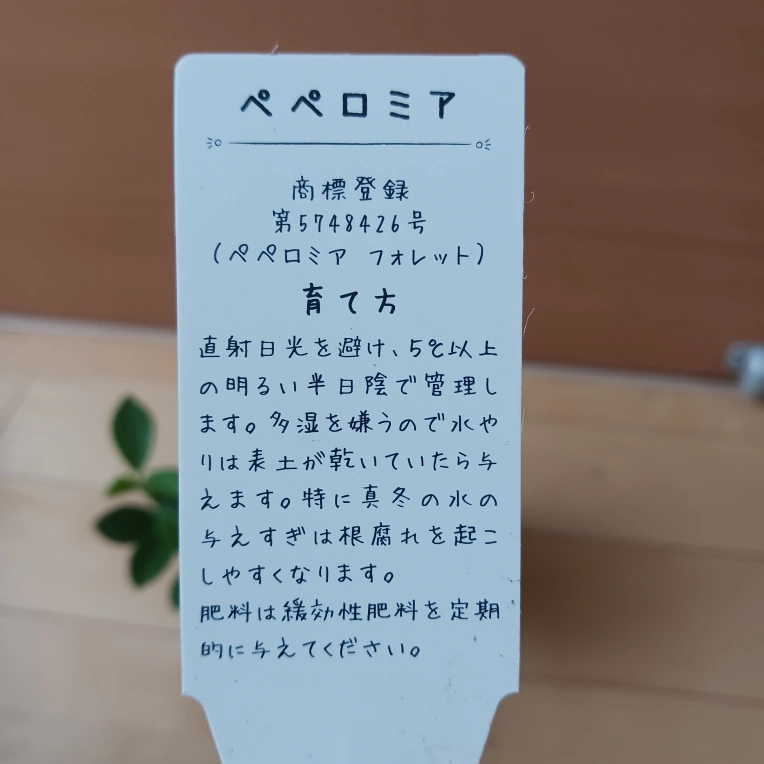 ペペロミア
商標登録
第5748426号
(ペペロミア フォレット)
育て方
直射日光を避け、5℃以上
の明るい半日陰で管理し
ます。多湿を嫌うので水や
りは表土が乾いていたら与
えます。特に真冬の水の
与えすぎは根腐れを起こ
しやすくなります。
肥料は緩効性肥料を定期
的に与えてください。